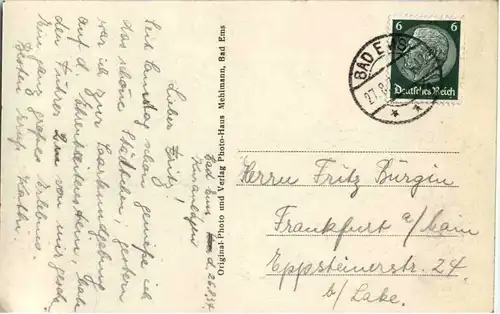 Bad Ems, d. 26.8.34
Lieber Fritz!
Seit Samstag schon genieße ich
das schöne Städtchen, gestern
war ich zur Saarkundgebung
auf d. Ehrenbreitstein, hab
den Führer 2 m von mir gesehn
Ein ganz großes Erlebnis.
Besten Gruß Käthe.
Original-Photo und Verlag Photo-Haus Mehlmann, Bad Ems
6 6
Deutsches Reich
BAD EMS
27.8.
Herrn Fritz Bürgin
Frankfurt a/Main
Eppsteinerstr. 24
b/ Lake.